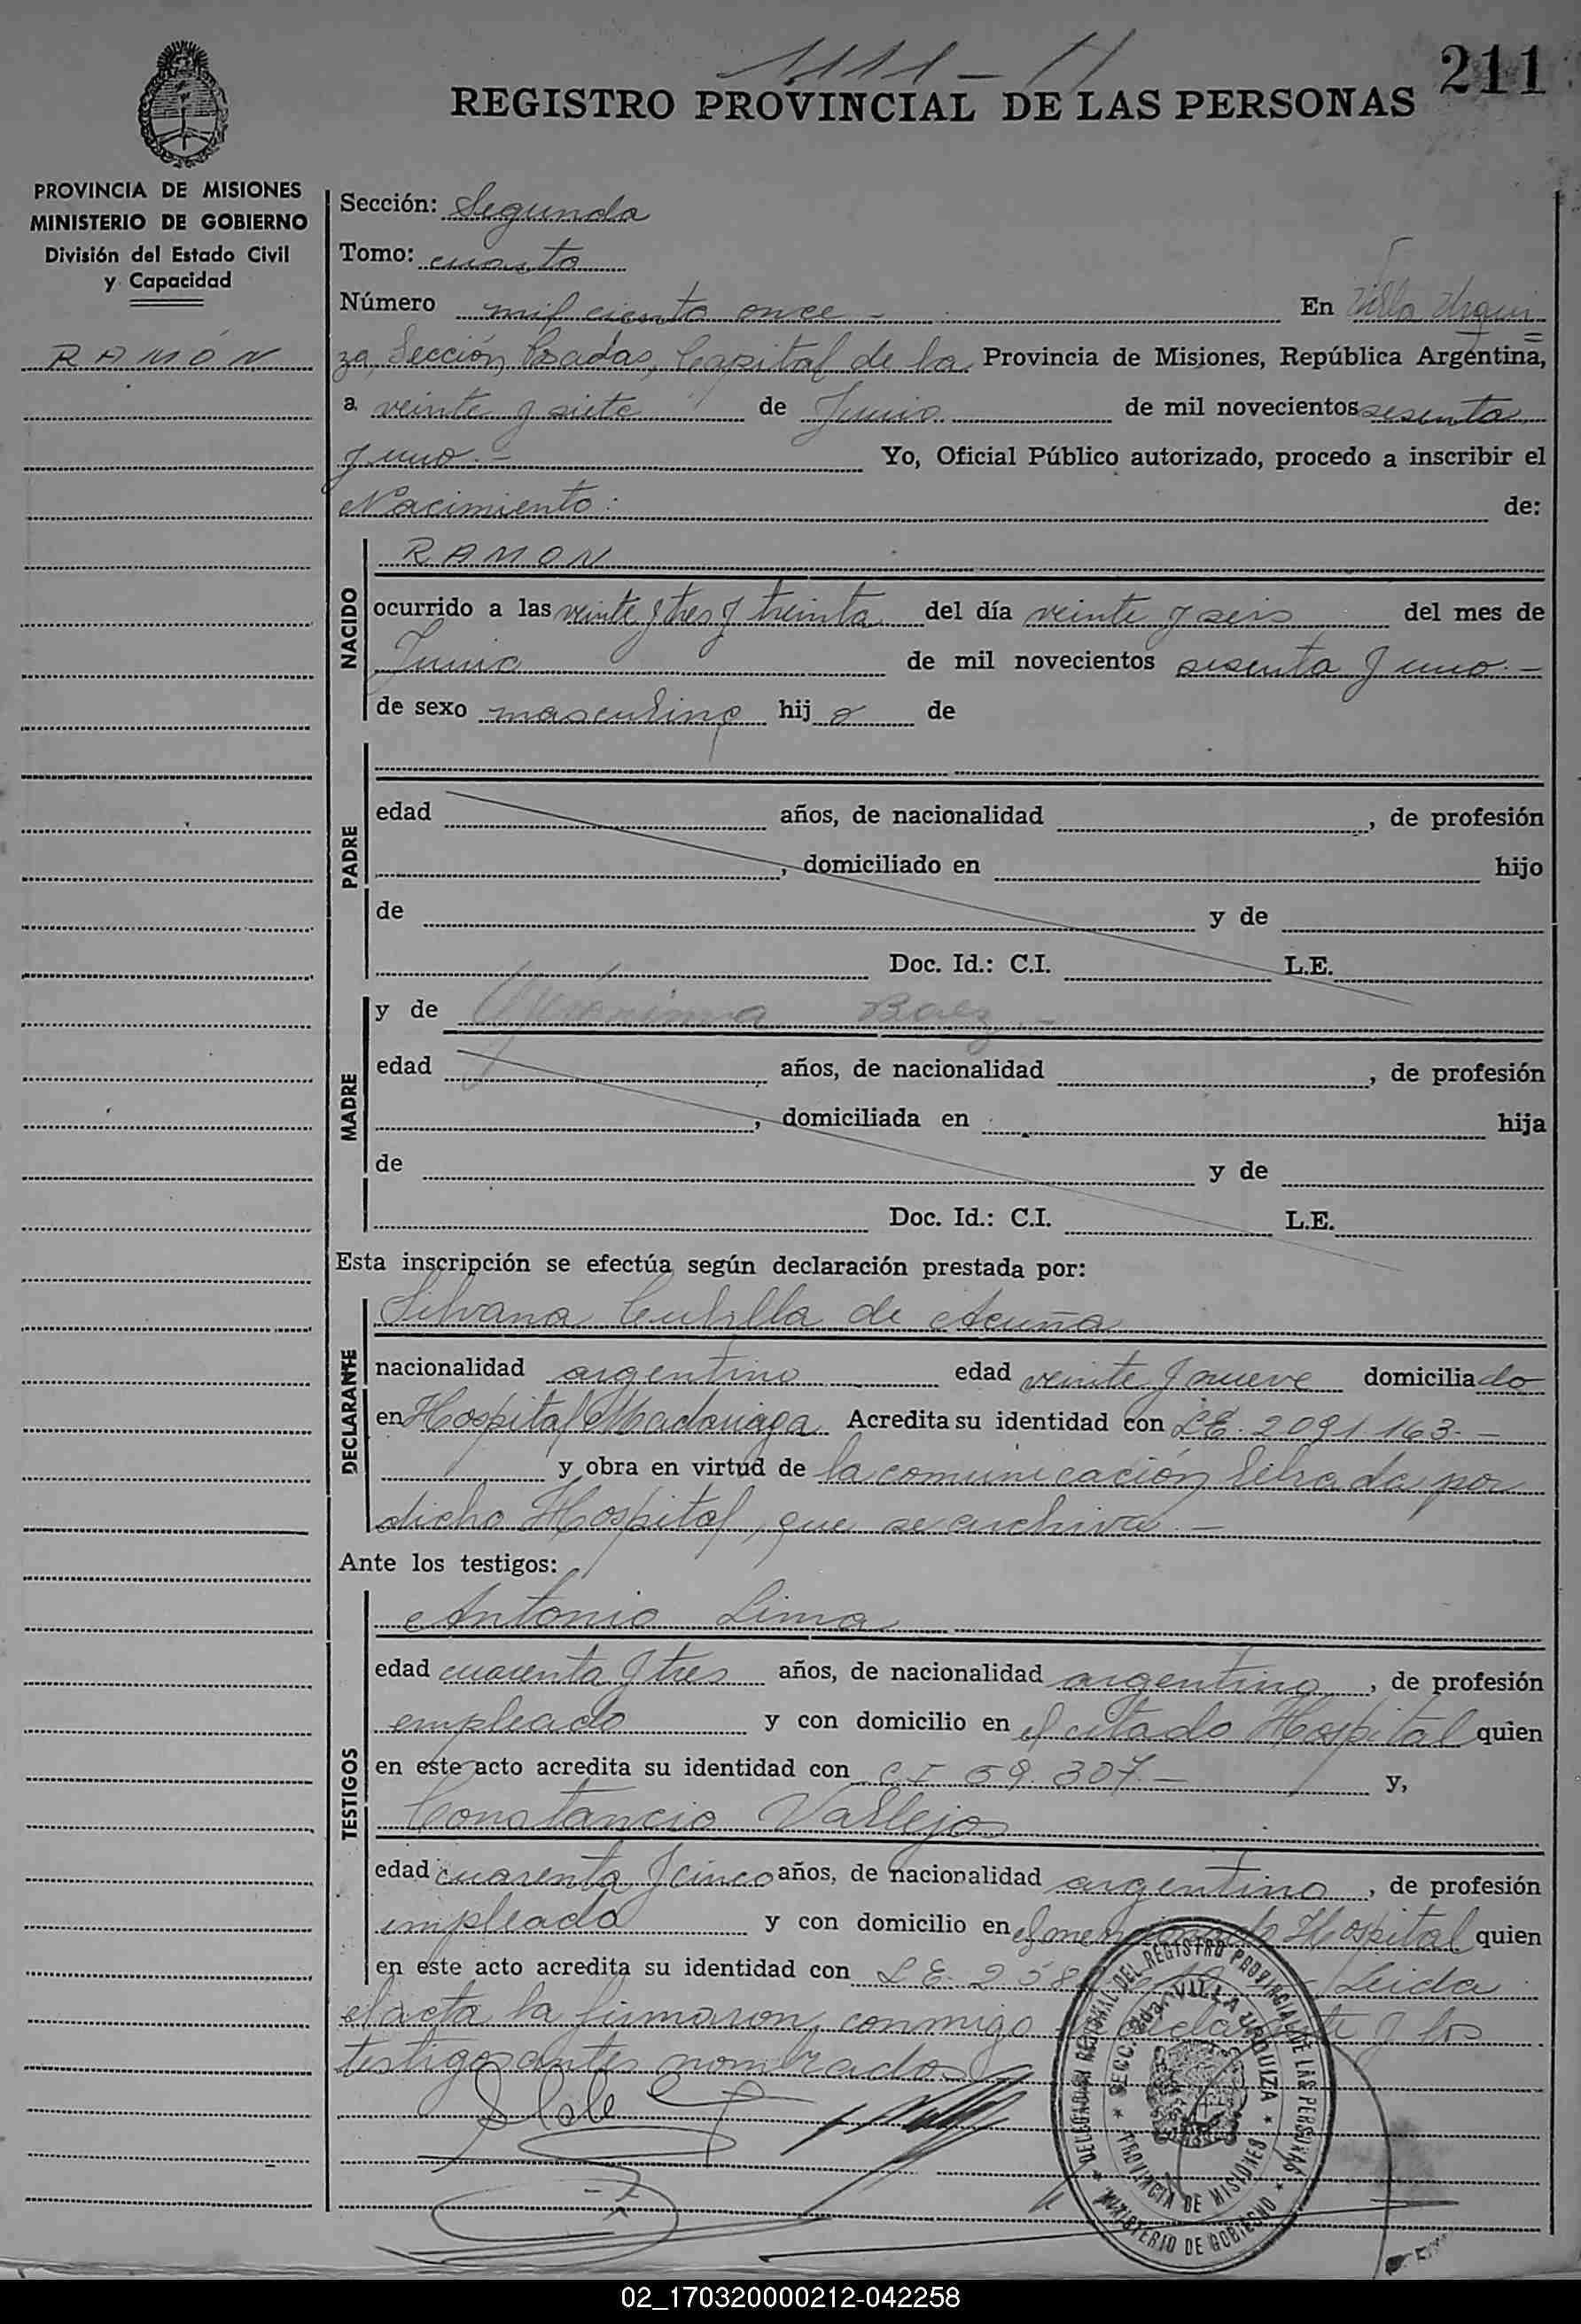 1111 - 
211
REGISTRO PROVINCIAL DE LAS PERSONAS
PROVINCIA DE MISIONES
MINISTERIO DE GOBIERNO
División del Estado Civil
y Capacidad
RAMÓN
Sección: Segunda
Tomo: cuarto
Número mil ciento once - En Villa Urqui
za, Sección Posadas, Capital de la Provincia de Misiones, República Argentina,
a veinte y siete de Junio de mil novecientos sesenta
y uno.- Yo, Oficial Público autorizado, procedo a inscribir el
Nacimiento: de:
NACIDO
RAMON
ocurrido a las veinte y tres y treinta del día veinte y seis del mes de
Junio de mil novecientos sesenta y uno.-
de sexo masculino hijo de
PADRE
edad años, de nacionalidad , de profesión
, domiciliado en hijo
de y de
Doc. Id.: C.I. L.E.
MADRE
y de Geronima Baez.-
edad años, de nacionalidad , de profesión
, domiciliada en hija
de y de
Doc. Id.: C.I. L.E.
Esta inscripción se efectúa según declaración prestada por:
DECLARANTE
Silvana de Acuña
nacionalidad argentina edad veinte y nueve domiciliado
en Hospital Madariaga Acredita su identidad con LE. 2091.163.-
y obra en virtud de la comunicación librada por
dicho Hospital, que se archiva.-
Ante los testigos:
TESTIGOS
Antonio Lima
edad cuarenta y tres años, de nacionalidad argentino, de profesión
empleado y con domicilio en el citado Hospital quien
en este acto acredita su identidad con C I 59.307.- y,
Constancio Vallejos
edad cuarenta y cinco años, de nacionalidad argentino, de profesión
empleado y con domicilio en el mencionado Hospital quien
en este acto acredita su identidad con LE. 258 Leida
el acta la firmaron conmigo declarante y los
testigos antes nombrados
DELEGACION REGIONAL DEL REGISTRO PROVINCIAL DE LAS PERSONAS
SECC. 2da. VILLA URQUIZA
PROVINCIA DE MISIONES
MINISTERIO DE GOBIERNO
02_170320000212-042258